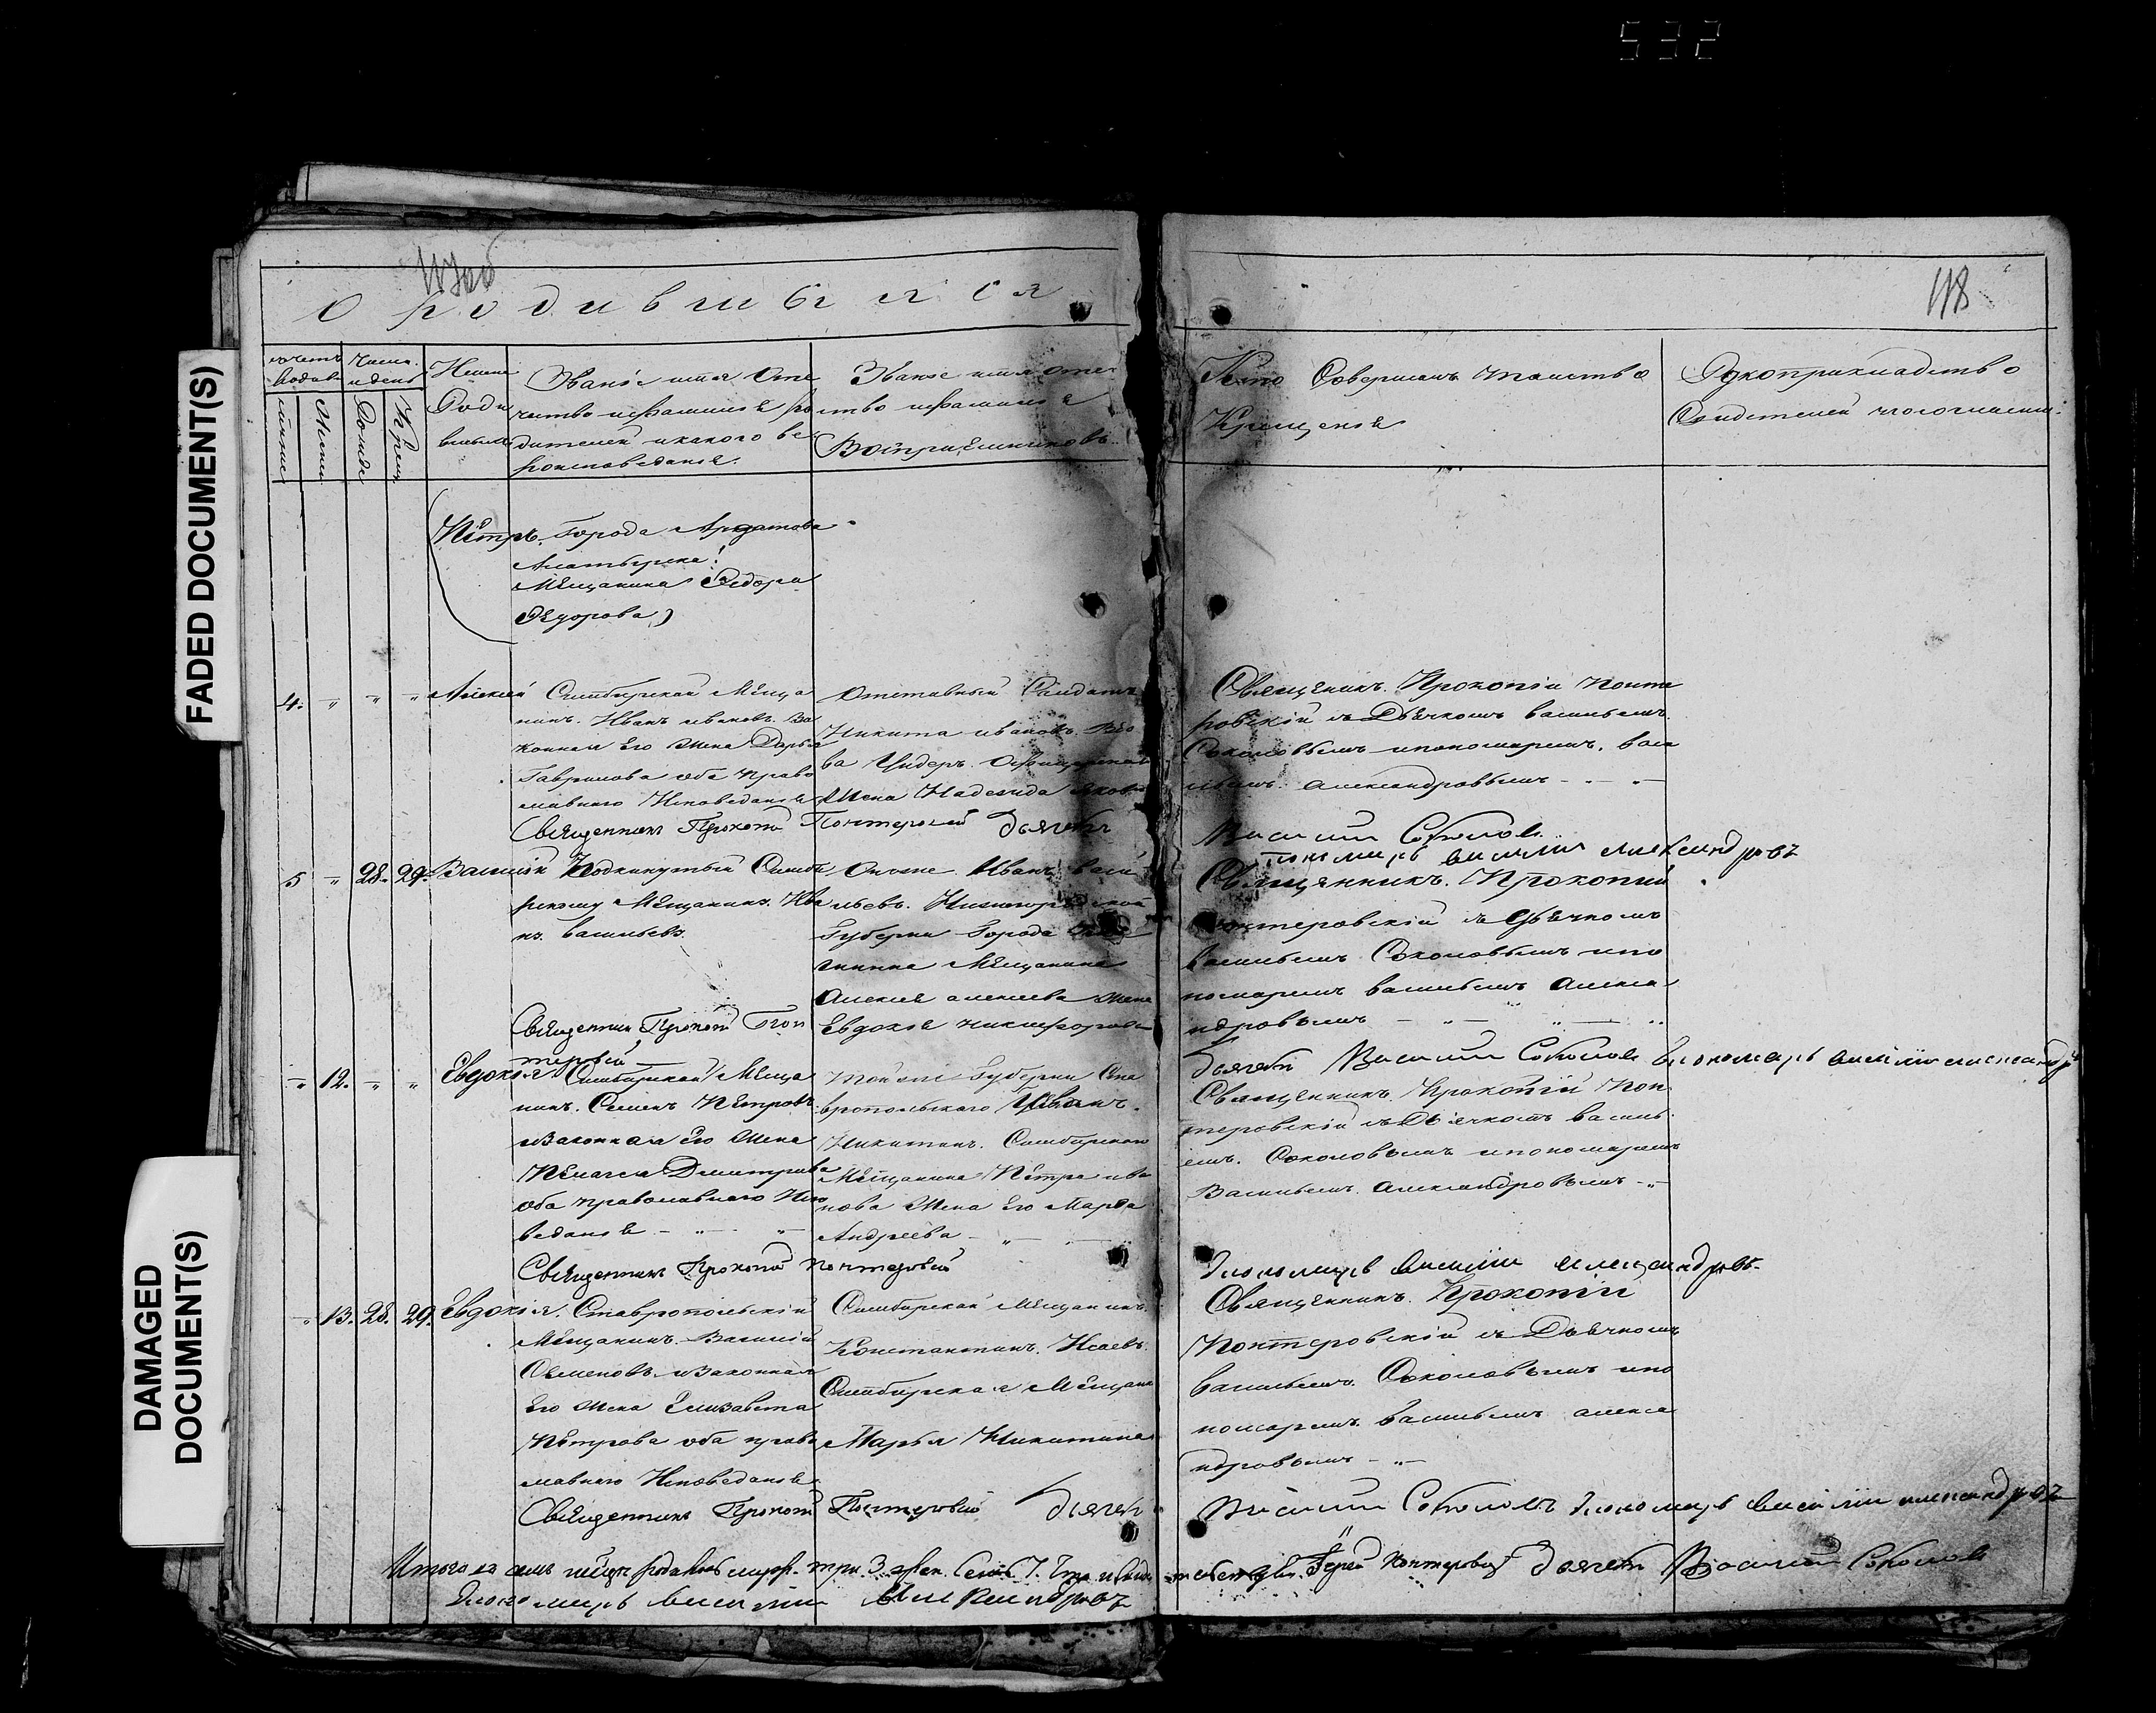 532
117об
118
О родившихся
счетъ родив
Число и день
Имена Родившихся
Званіе имя Отечество и фамилія родителей и какого вероисповеданія.
Званіе имя отечество и фамилія Воспріемниковъ
Кто Совершалъ таинство Крещенія
Рукоприкладство Свидетелей
Женск
Рожде
Крещ
(Петръ. Города Ардатова
Мещанина Федора
Федорова)
4. Алексей Симбирской Меща
нинъ. Иванъ ивановъ. За
конная Его Жена Дарья
Гаврилова оба Право
славнаго Исповеданія
Отставный Салдатъ
Никита ивановъ. Вдо
ва Ундеръ. Офицерская
Жена Надежда
Священникъ. Прокопій Понте
ровскій съ Дьячкомъ васильемъ.
Соколовымъ ипономаремъ. васи
льемъ. александровымъ
Священникъ Прокопій Понтеровскій дьячекъ
Василій Соколовъ
пономарь василій александровъ
5 28. 29. Василій Подкинутый Симби
рскому Мещанину. Ива
ну. васильеву.
Иванъ васи
льевъ. Нижегородской
Губерни Города
Мещанина
Алексея алексеева жена
Евдокія никифорова
Священникъ. Прокопій
Понтеровскій съ Дьячкомъ
васильемъ Соколовымъ ипо
номаремъ васильемъ Алекса
ндровымъ
Священникъ Прокопій Пон
теровскій
дьячекъ Василій Соколовъ пономарь василій александръ
12. Евдокія Симбирской Меща
нинъ. Семенъ Петровъ
изаконная Его Жена
Пелагея Димитриева
оба православнаго Испо
веданія
Тойже Губерни Ста
вропольскаго
Никитинъ. Симбирскаго
Мещанина Петра ива
нова Жена Его Марфа
Андреева
Священникъ. Прокопій Пон
теровскій съ Дьячкомъ василь
емъ. Соколовымъ ипономаремъ
Васильемъ Александровымъ
Священникъ Прокопій Понтеровскій
пономарь василій александровъ.
13. 28. 29. Евдокія. Ставропольскій
Мещанинъ. Василій
Семеновъ изаконная
Его Жена Елизавета
Петрова оба право
славнаго Исповеданія
Симбирской мещанинъ.
Константинъ. Исаевъ.
Симбирская Мещанка
Марья Никитина
Священникъ. Прокопій
Понтеровскій съ Дьячкомъ
васильемъ. Соколовымъ ипо
номаремъ. васильемъ алекса
ндровымъ
Священникъ Прокопій Понтеровскій дьячекъ
Василій Соколовъ пономарь василій александровъ
Итого въ семъ родилось муж. три 3. жен. Семь 7. Іерей Понтеровскій дьячекъ Василій Соколовъ
пономарь василій Александровъ
FADED DOCUMENT(S)
DAMAGED
DOCUMENT(S)